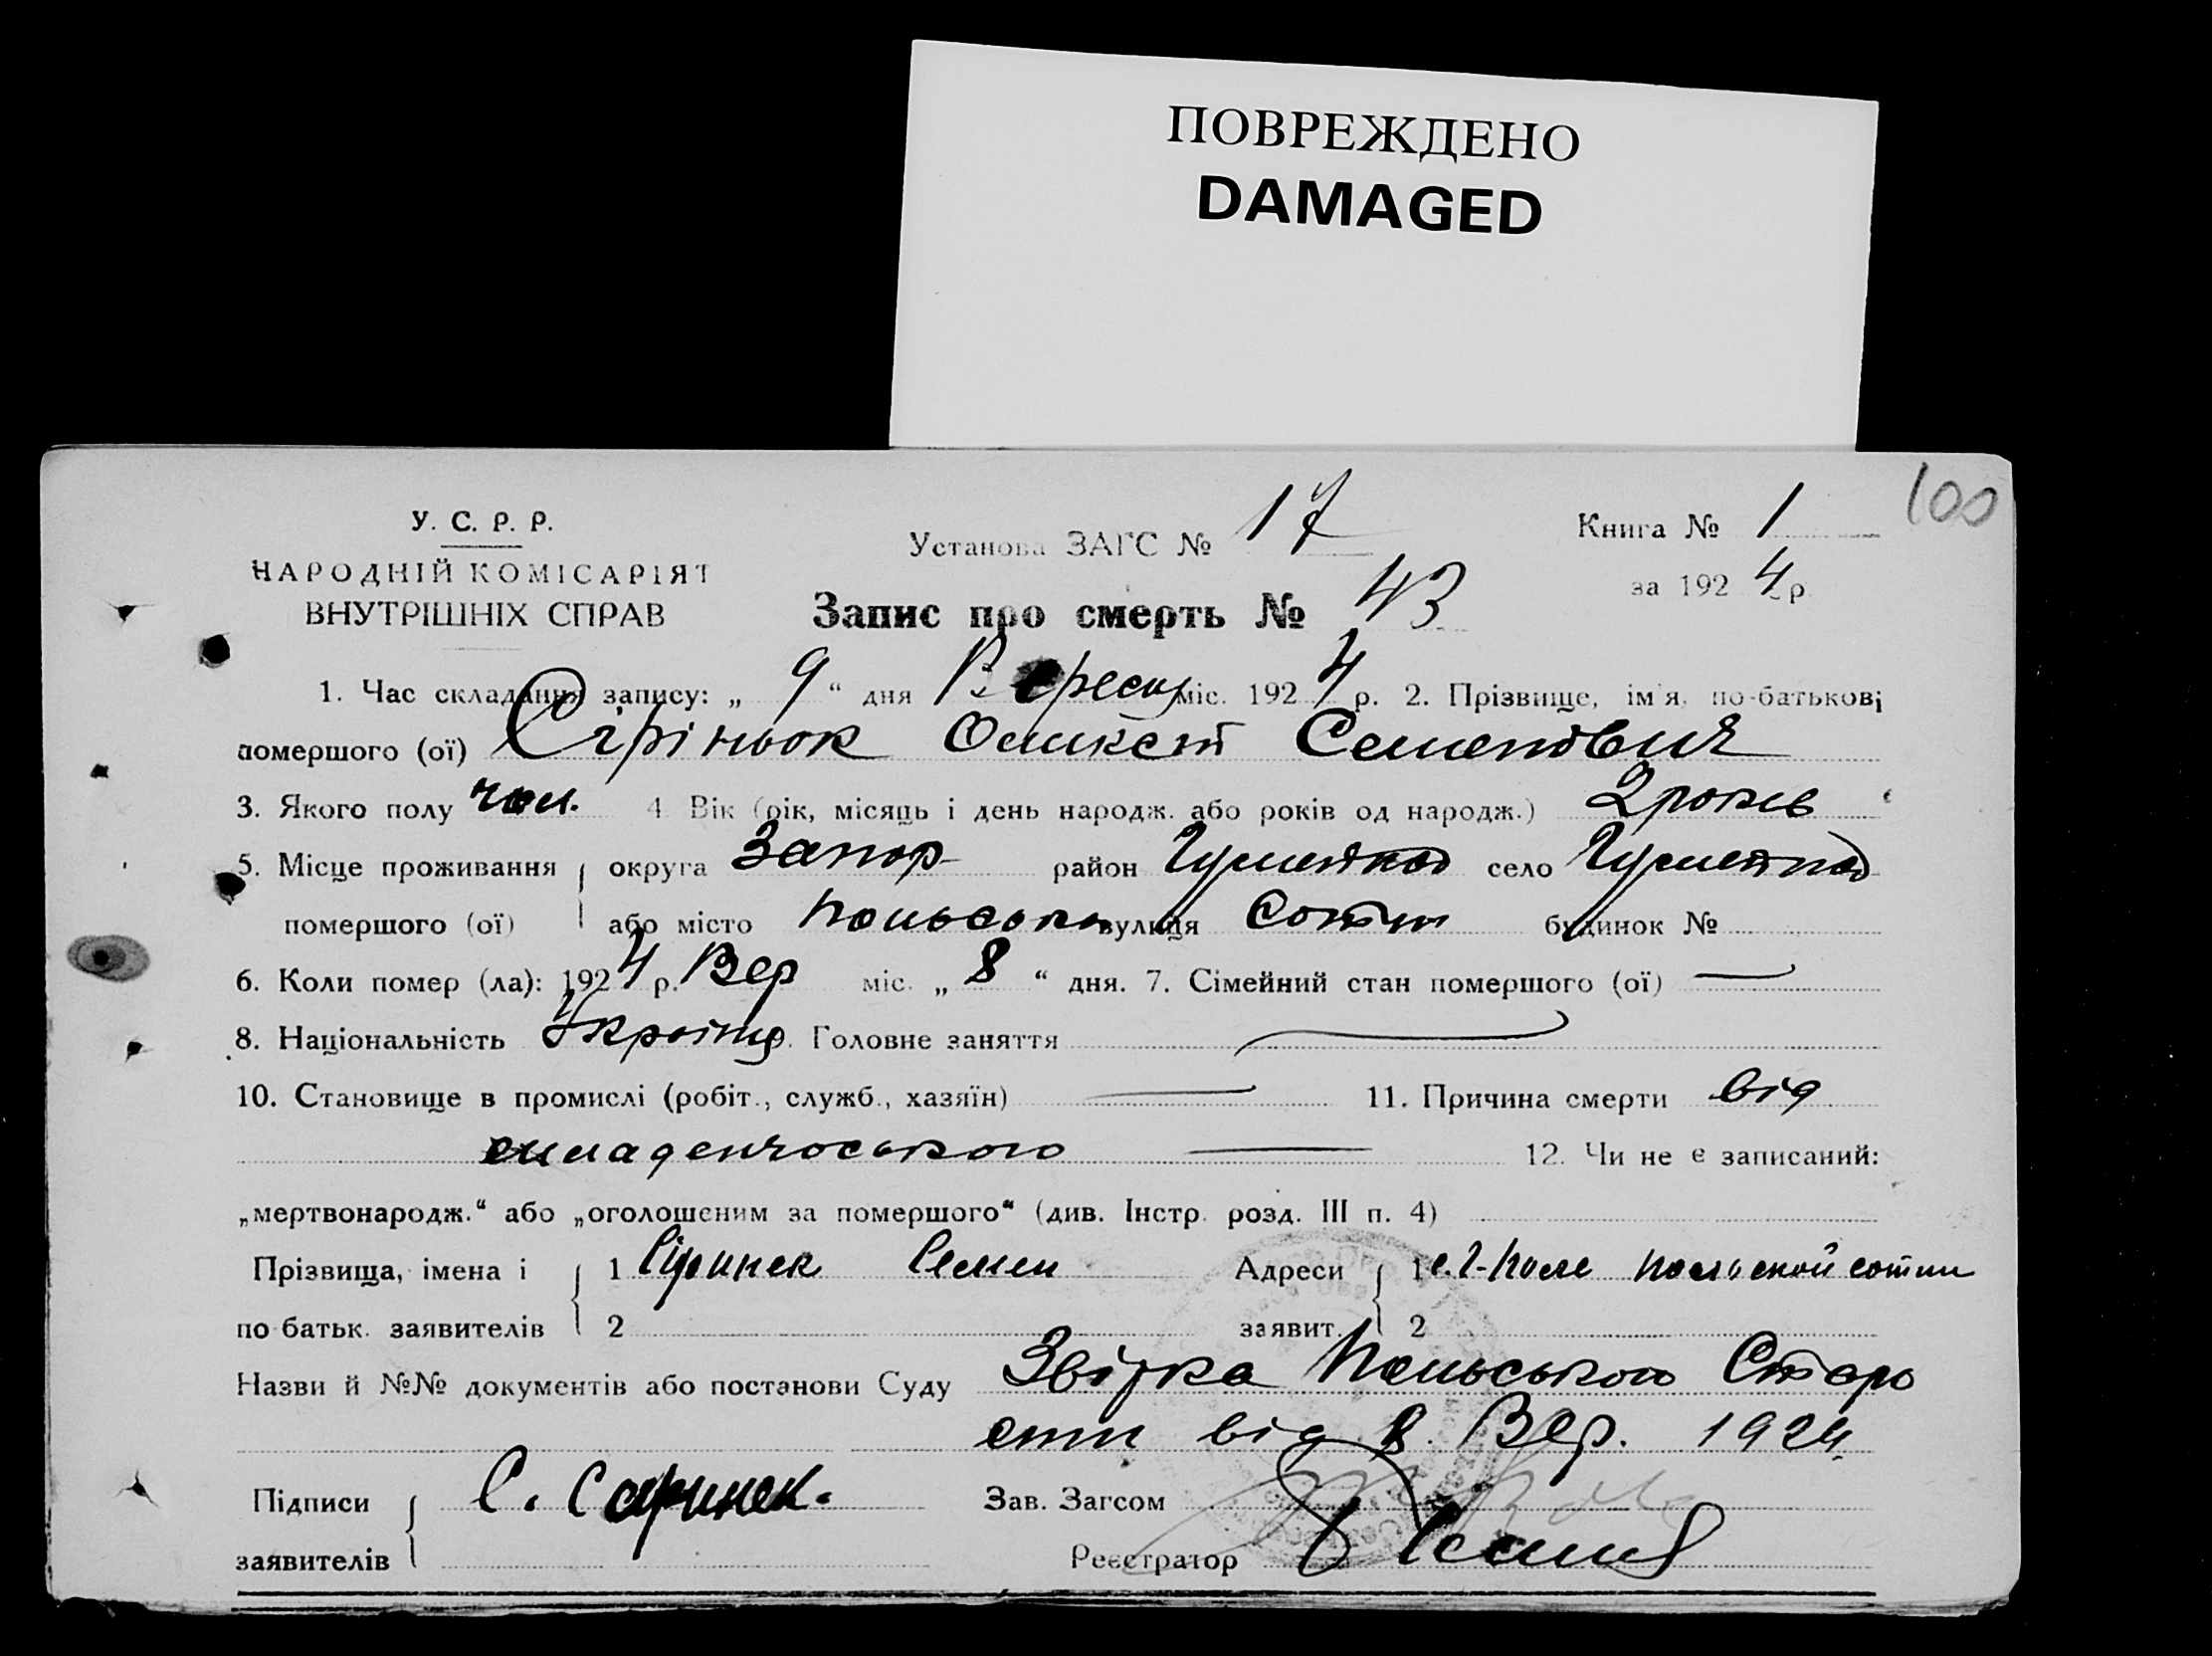 ПОВРЕЖДЕНО
DAMAGED
100
У. С. Р. Р.
НАРОДНІЙ КОМІСАРІЯТ
ВНУТРІШНІХ СПРАВ
Установа ЗАГС № 17
Книга № 1
за 1924 р.
Запис про смерть № 43
1. Час складання запису: „ 9 “ дня Вересн міс. 1924 р. 2. Прізвище, ім'я, по-батькові
помершого (ої) Сіріньок Семенович
3. Якого полу чол. 4 Вік (рік, місяць і день народж. або років од народж.) 2 років
5. Місце проживання округа Запор район село
помершого (ої) або місто вулиця Сотн будинок №
6. Коли помер (ла): 1924 р. Вер міс. „ 8 “ дня. 7. Сімейний стан помершого (ої) —
8. Національність Головне заняття —
10. Становище в промислі (робіт., служб., хазяїн) — 11. Причина смерти від
младенчоського — 12. Чи не є записаний:
„мертвонародж.“ або „оголошеним за помершого“ (див. Інстр. розд. III п. 4)
Прізвища, імена і 1 Сіринек Семен Адреси 1 с. Г-Поле сотни
по батьк. заявителів 2 заявит. 2
Назви й №№ документів або постанови Суду Польського Старо
сти від 8. Вер. 1924
Підписи С. Саринек. Зав. Загсом
заявителів Реєстратор